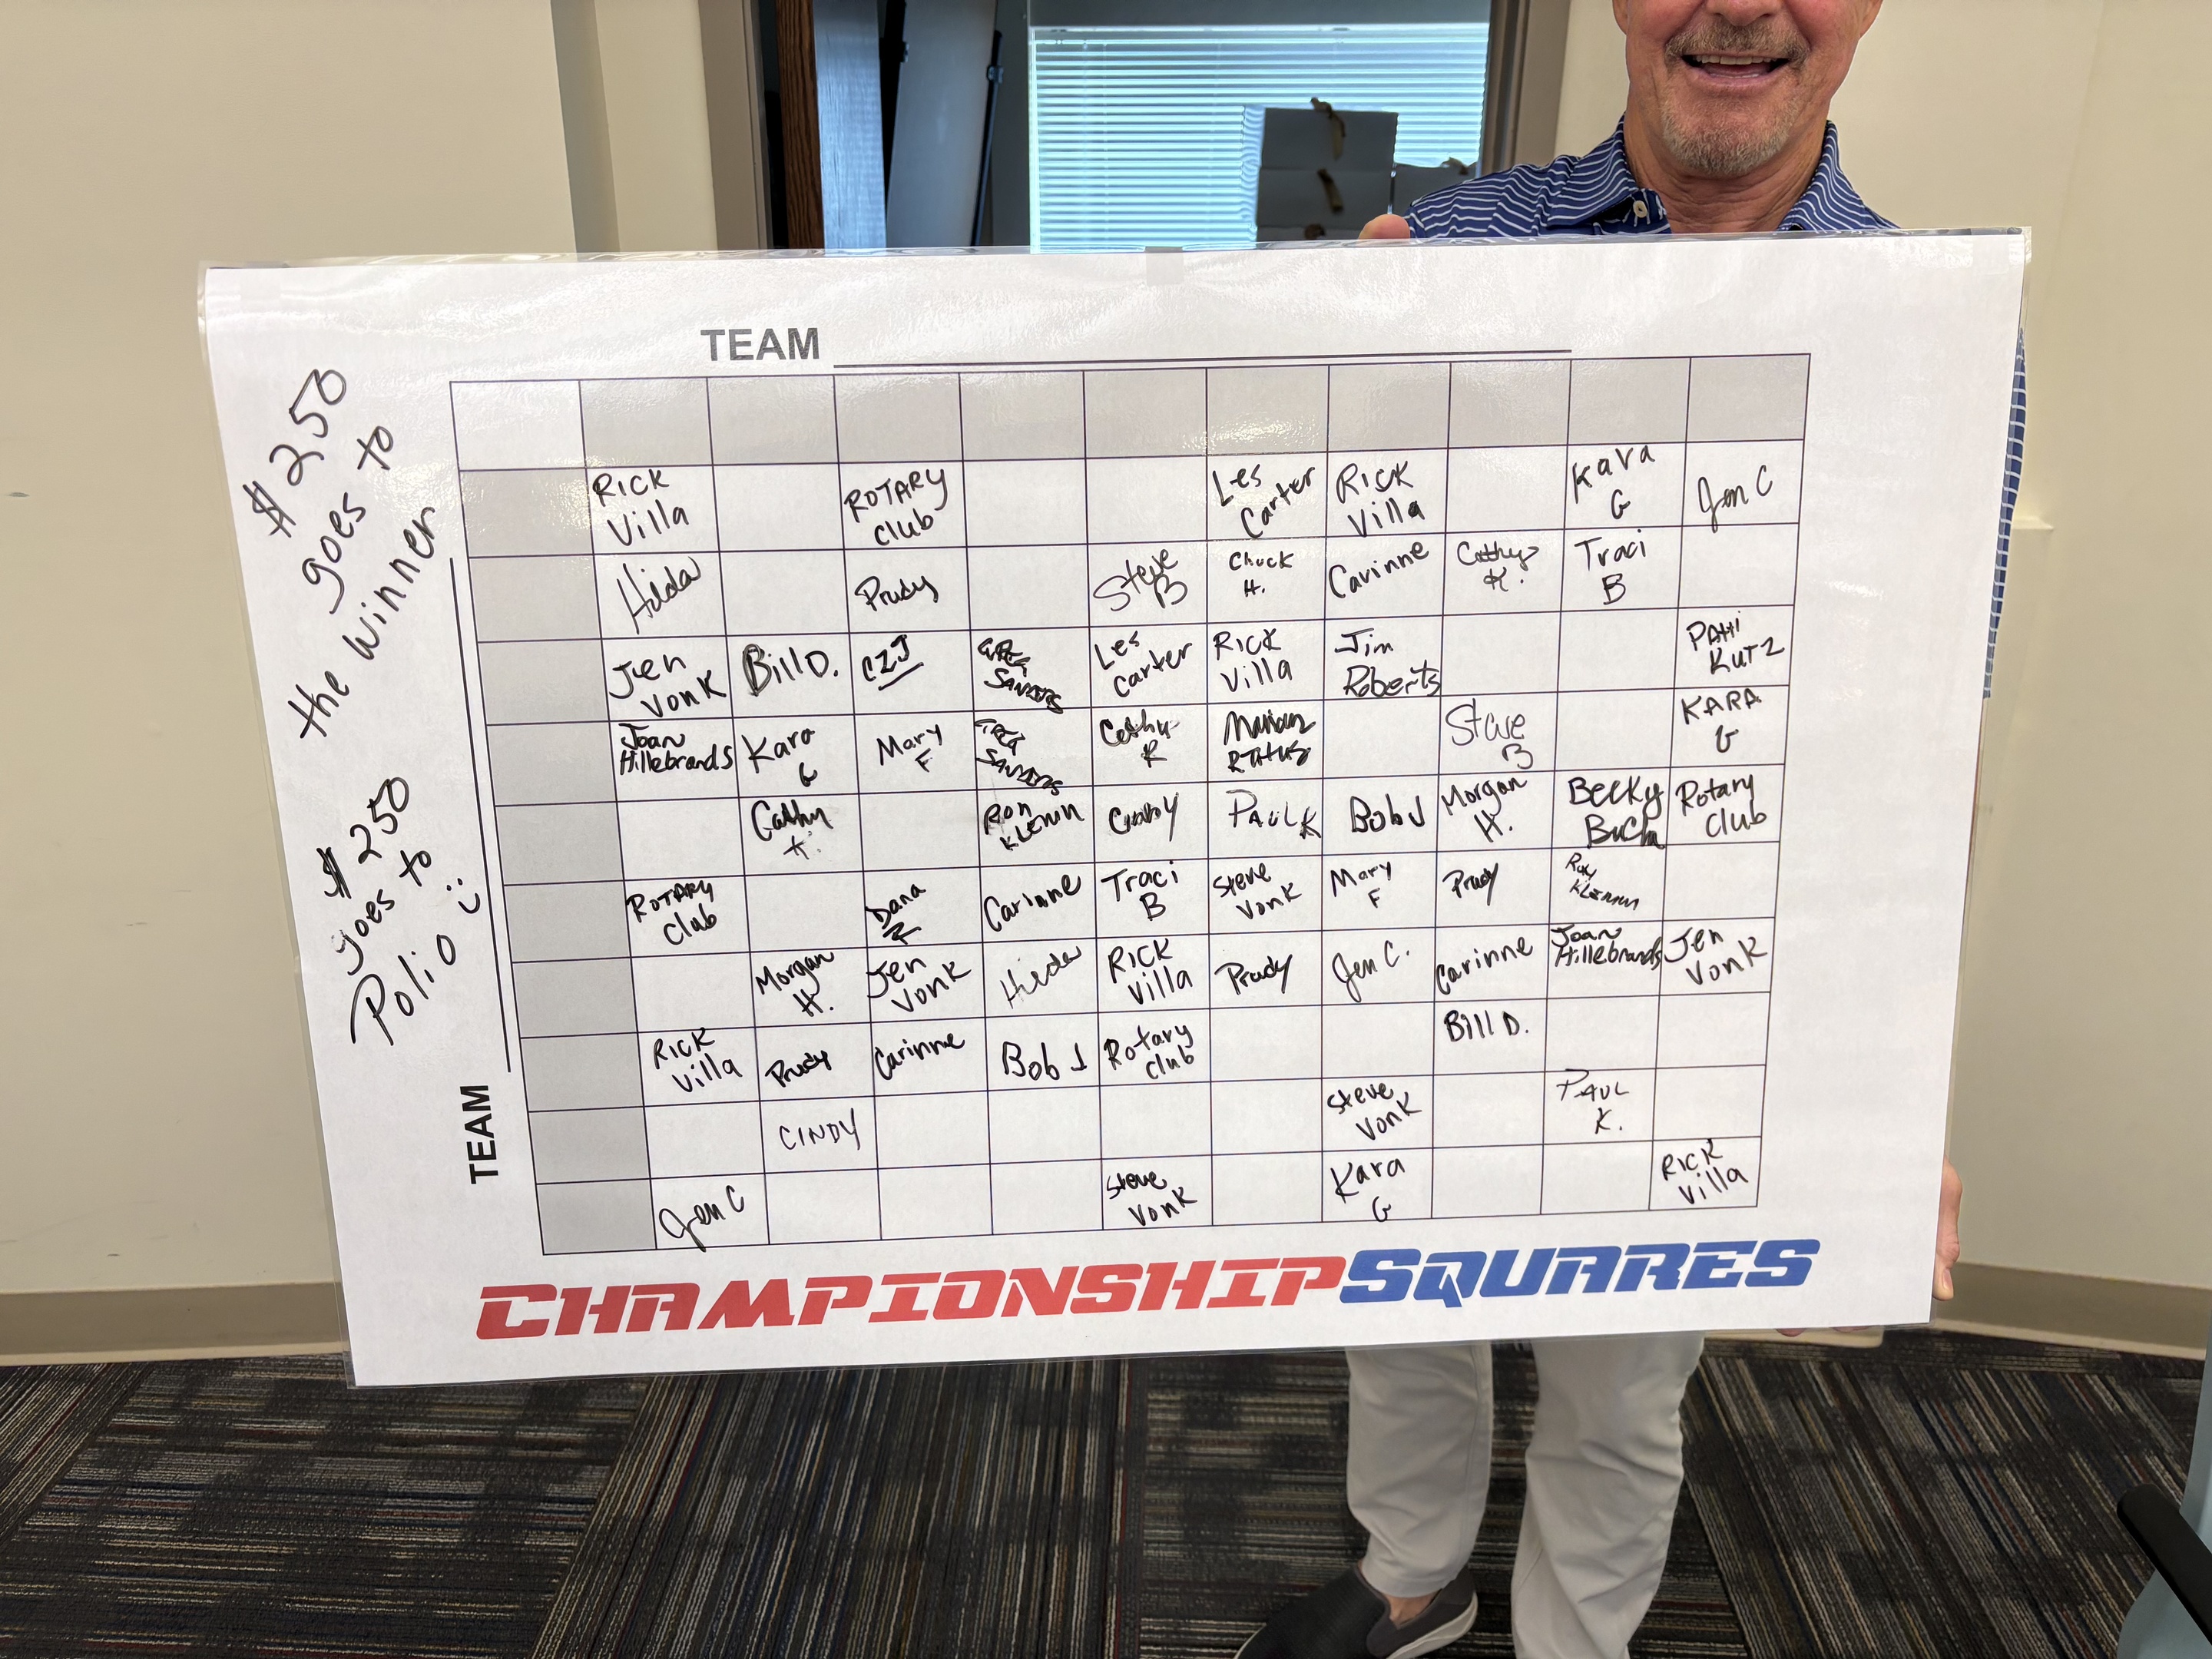 $250
goes to
the winner
$250
goes to
Polio
TEAM
TEAM
RICK Villa
ROTARY Club
Les Carter
RICK Villa
Kara G
Jen C
Hilda
Prudy
Steve B
Chuck H.
Carinne
Cathy K.
Traci B
Jen VonK
Bill D.
CZJ
GREG SANDERS
Les Carter
RICK Villa
Jim Roberts
PATTI KUTZ
Joan Hillebrands
Kara G
Mary F
GREG SANDERS
Cathy K
Steve B
KARA G
Cathy K.
Ron KLEMM
Cindy
PAUL K
Bob J
Morgan H.
Becky Buch
Rotary Club
ROTARY Club
Dana Z
Carinne
Traci B
Steve VonK
Mary F
Prudy
KLEMM
Morgan H.
Jen VonK
Hilda
RICK Villa
Prudy
Jen C.
Carinne
Joan Hillebrands
Jen VonK
RICK Villa
Prudy
Carinne
Bob J
Rotary Club
Bill D.
CINDY
Steve VonK
PAUL K.
Jen C
Steve VonK
Kara G
RICK Villa
CHAMPIONSHIPSQUARES